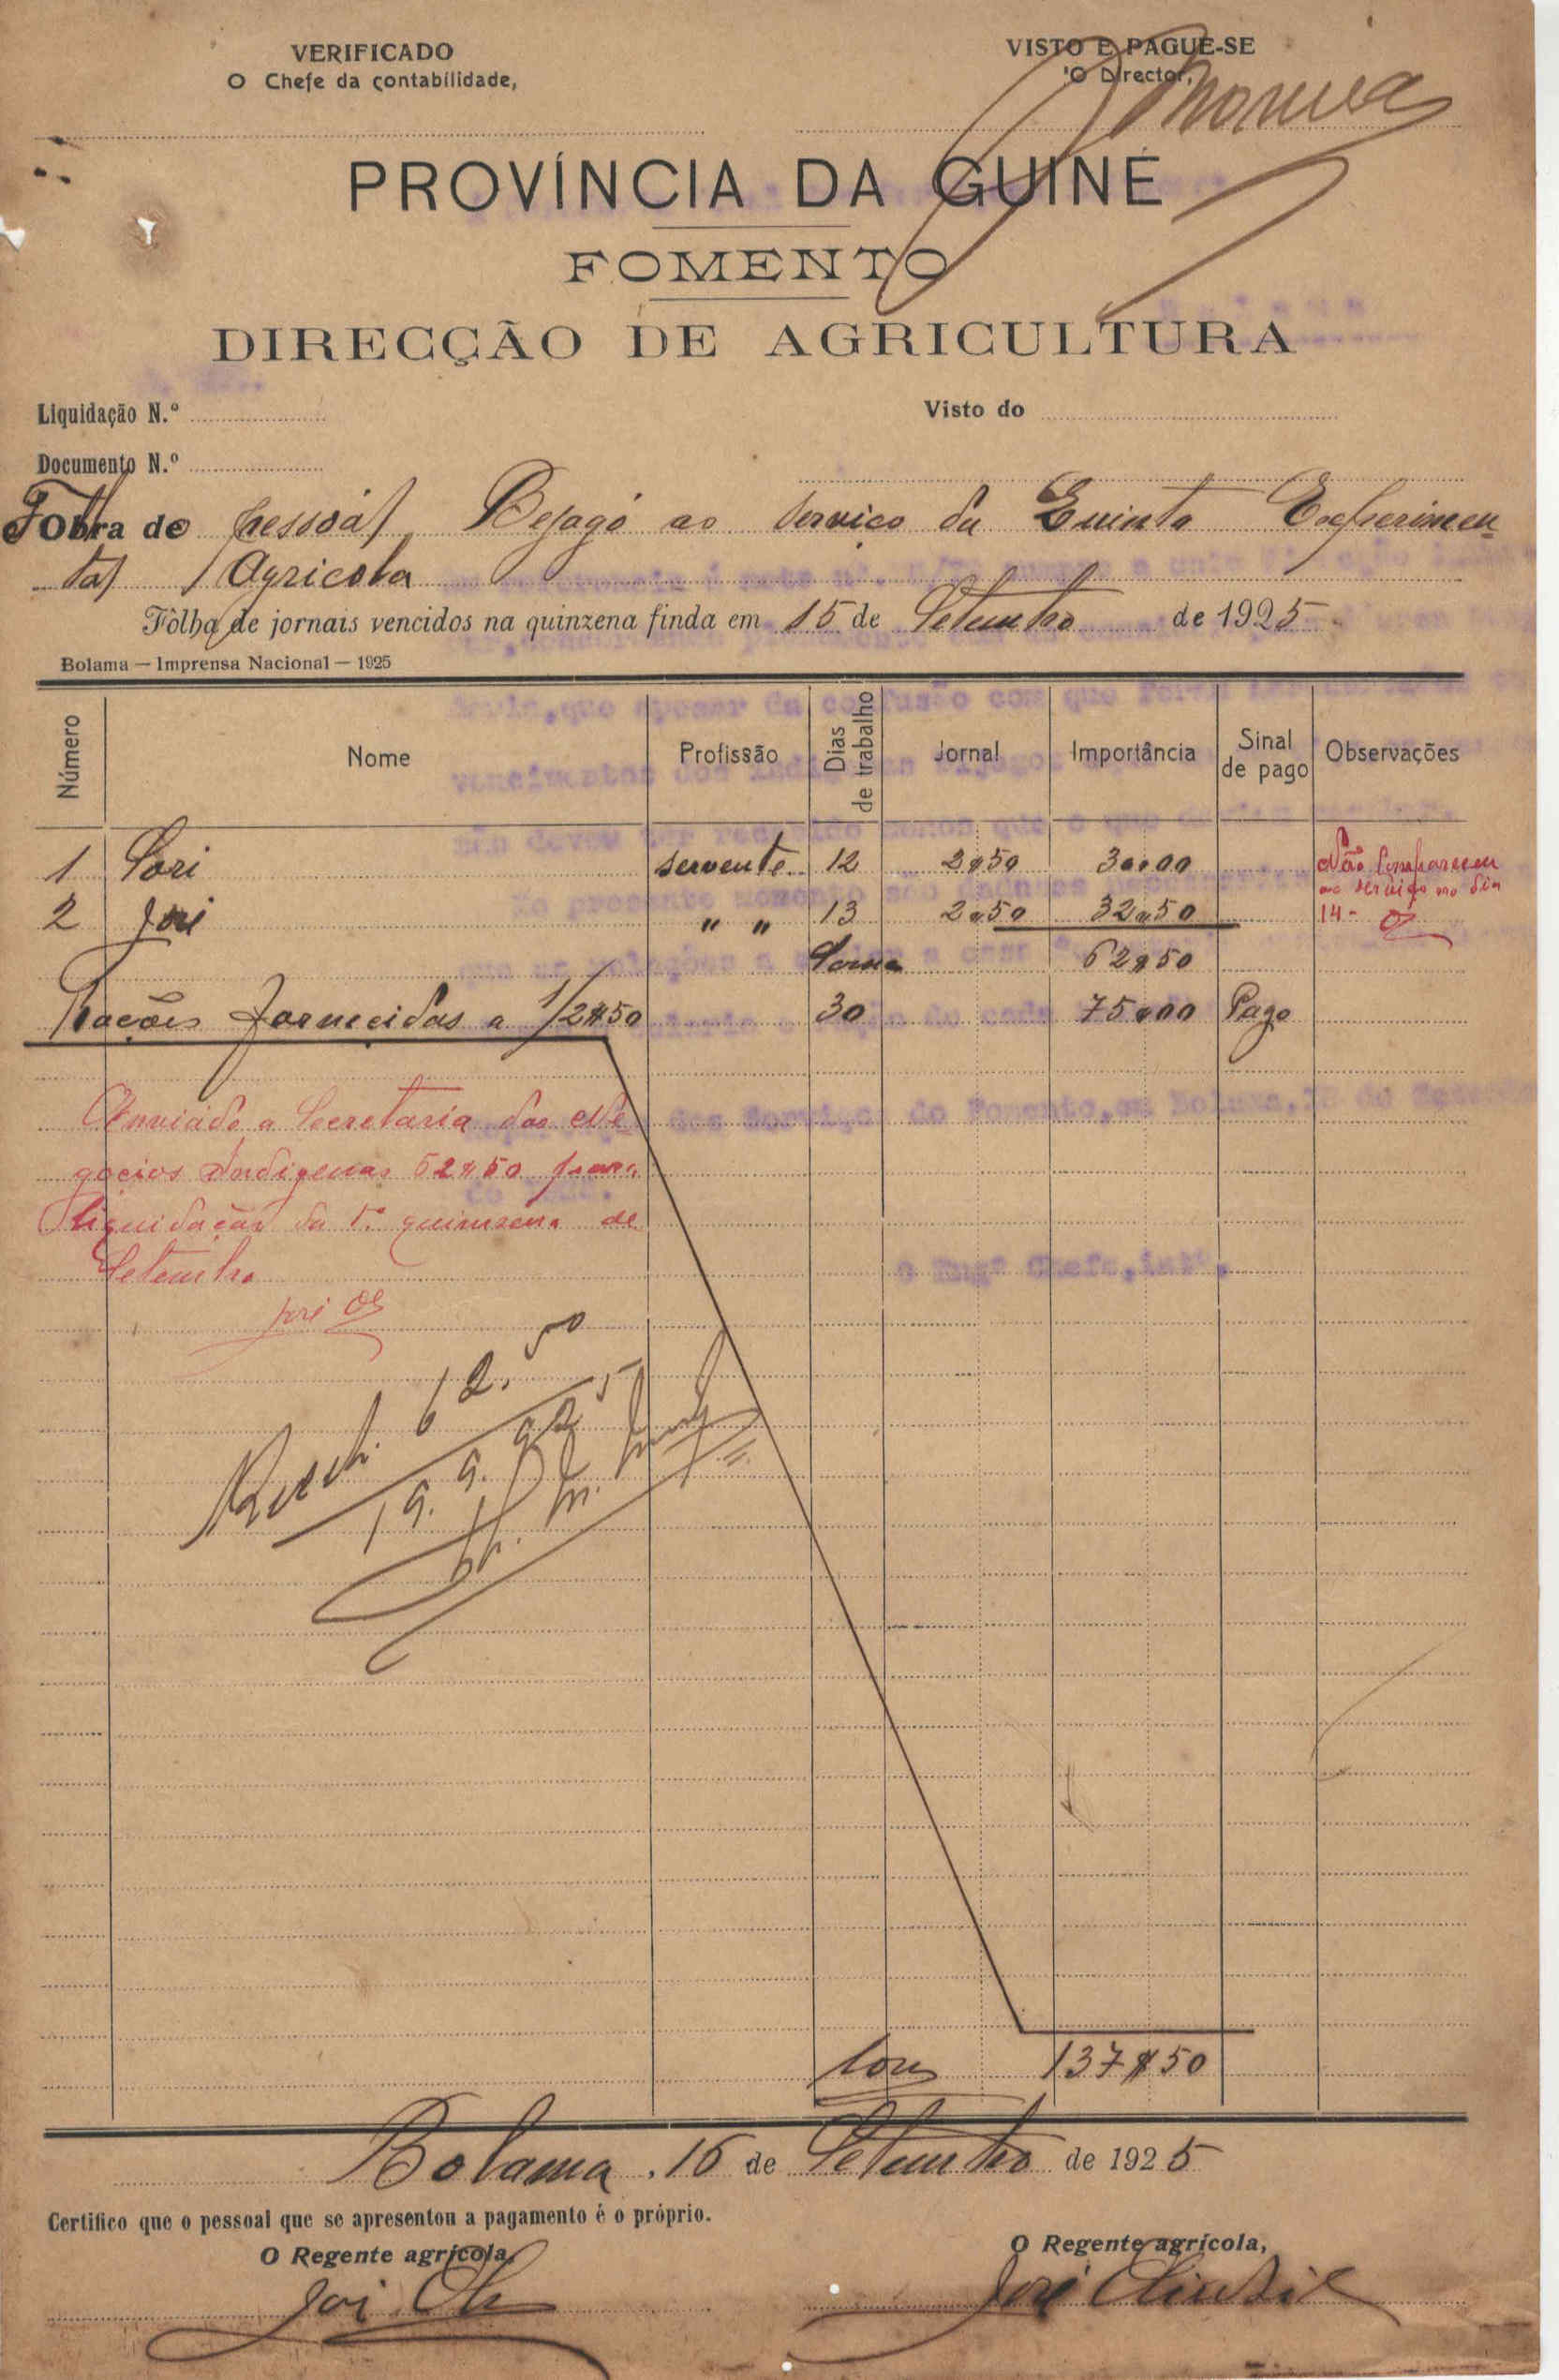 VERIFICADO
O Chefe da contabilidade,
VISTO E PAGUE-SE
O Director,
PROVÍNCIA DA GUINÉ
FOMENTO
DIRECÇÃO DE AGRICULTURA
Liquidação N.º
Visto do
Documento N.º
Obra de pessoal Bejagó ao serviço da Quinta Experimen-
tal Agricola
Fôlha de jornais vencidos na quinzena finda em 15 de Setembro de 1925
Bolama — Imprensa Nacional — 1925
Número Nome Profissão Dias de trabalho Jornal Importância Sinal de pago Observações
1 Sori servente 12 2$50 30$00 Não compareceu
ao serviço no dia
2 José " " 13 2$50 32$50 14-
Soma 62$50
Rações fornecidas a 2$50 30 75$00 Pago
Enviado a Secretaria dos Ne-
gocios Indigenas 62$50 para
liquidação da 1ª quinzena de
Setembro
José
Recebi 62.50
19.9.925
Soma 137$50
Bolama, 16 de Setembro de 1925
Certifico que o pessoal que se apresentou a pagamento é o próprio.
O Regente agrícola,
O Regente agrícola,
José
José